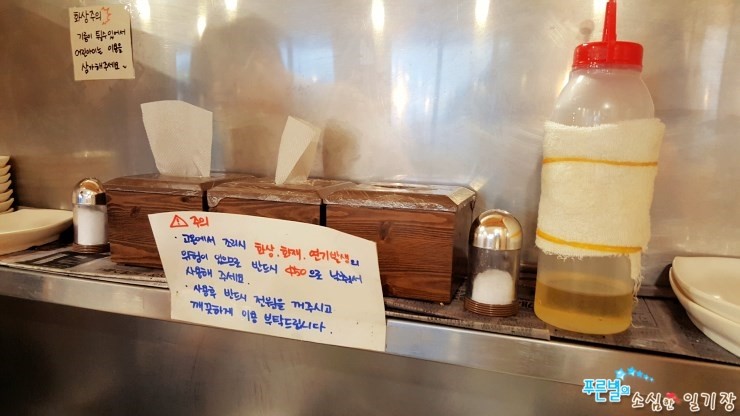 화상주의
기름이 튈수있어서
어린아이는 이용을
삼가해주세요.
⚠ 주의
· 고온에서 조리시 화상, 화재, 연기발생의
위험이 있으므로 반드시 450으로 낮춰서
사용해 주세요.
· 사용후 반드시 전원을 꺼주시고
깨끗하게 이용 부탁드립니다.
푸른별의 소심한 일기장